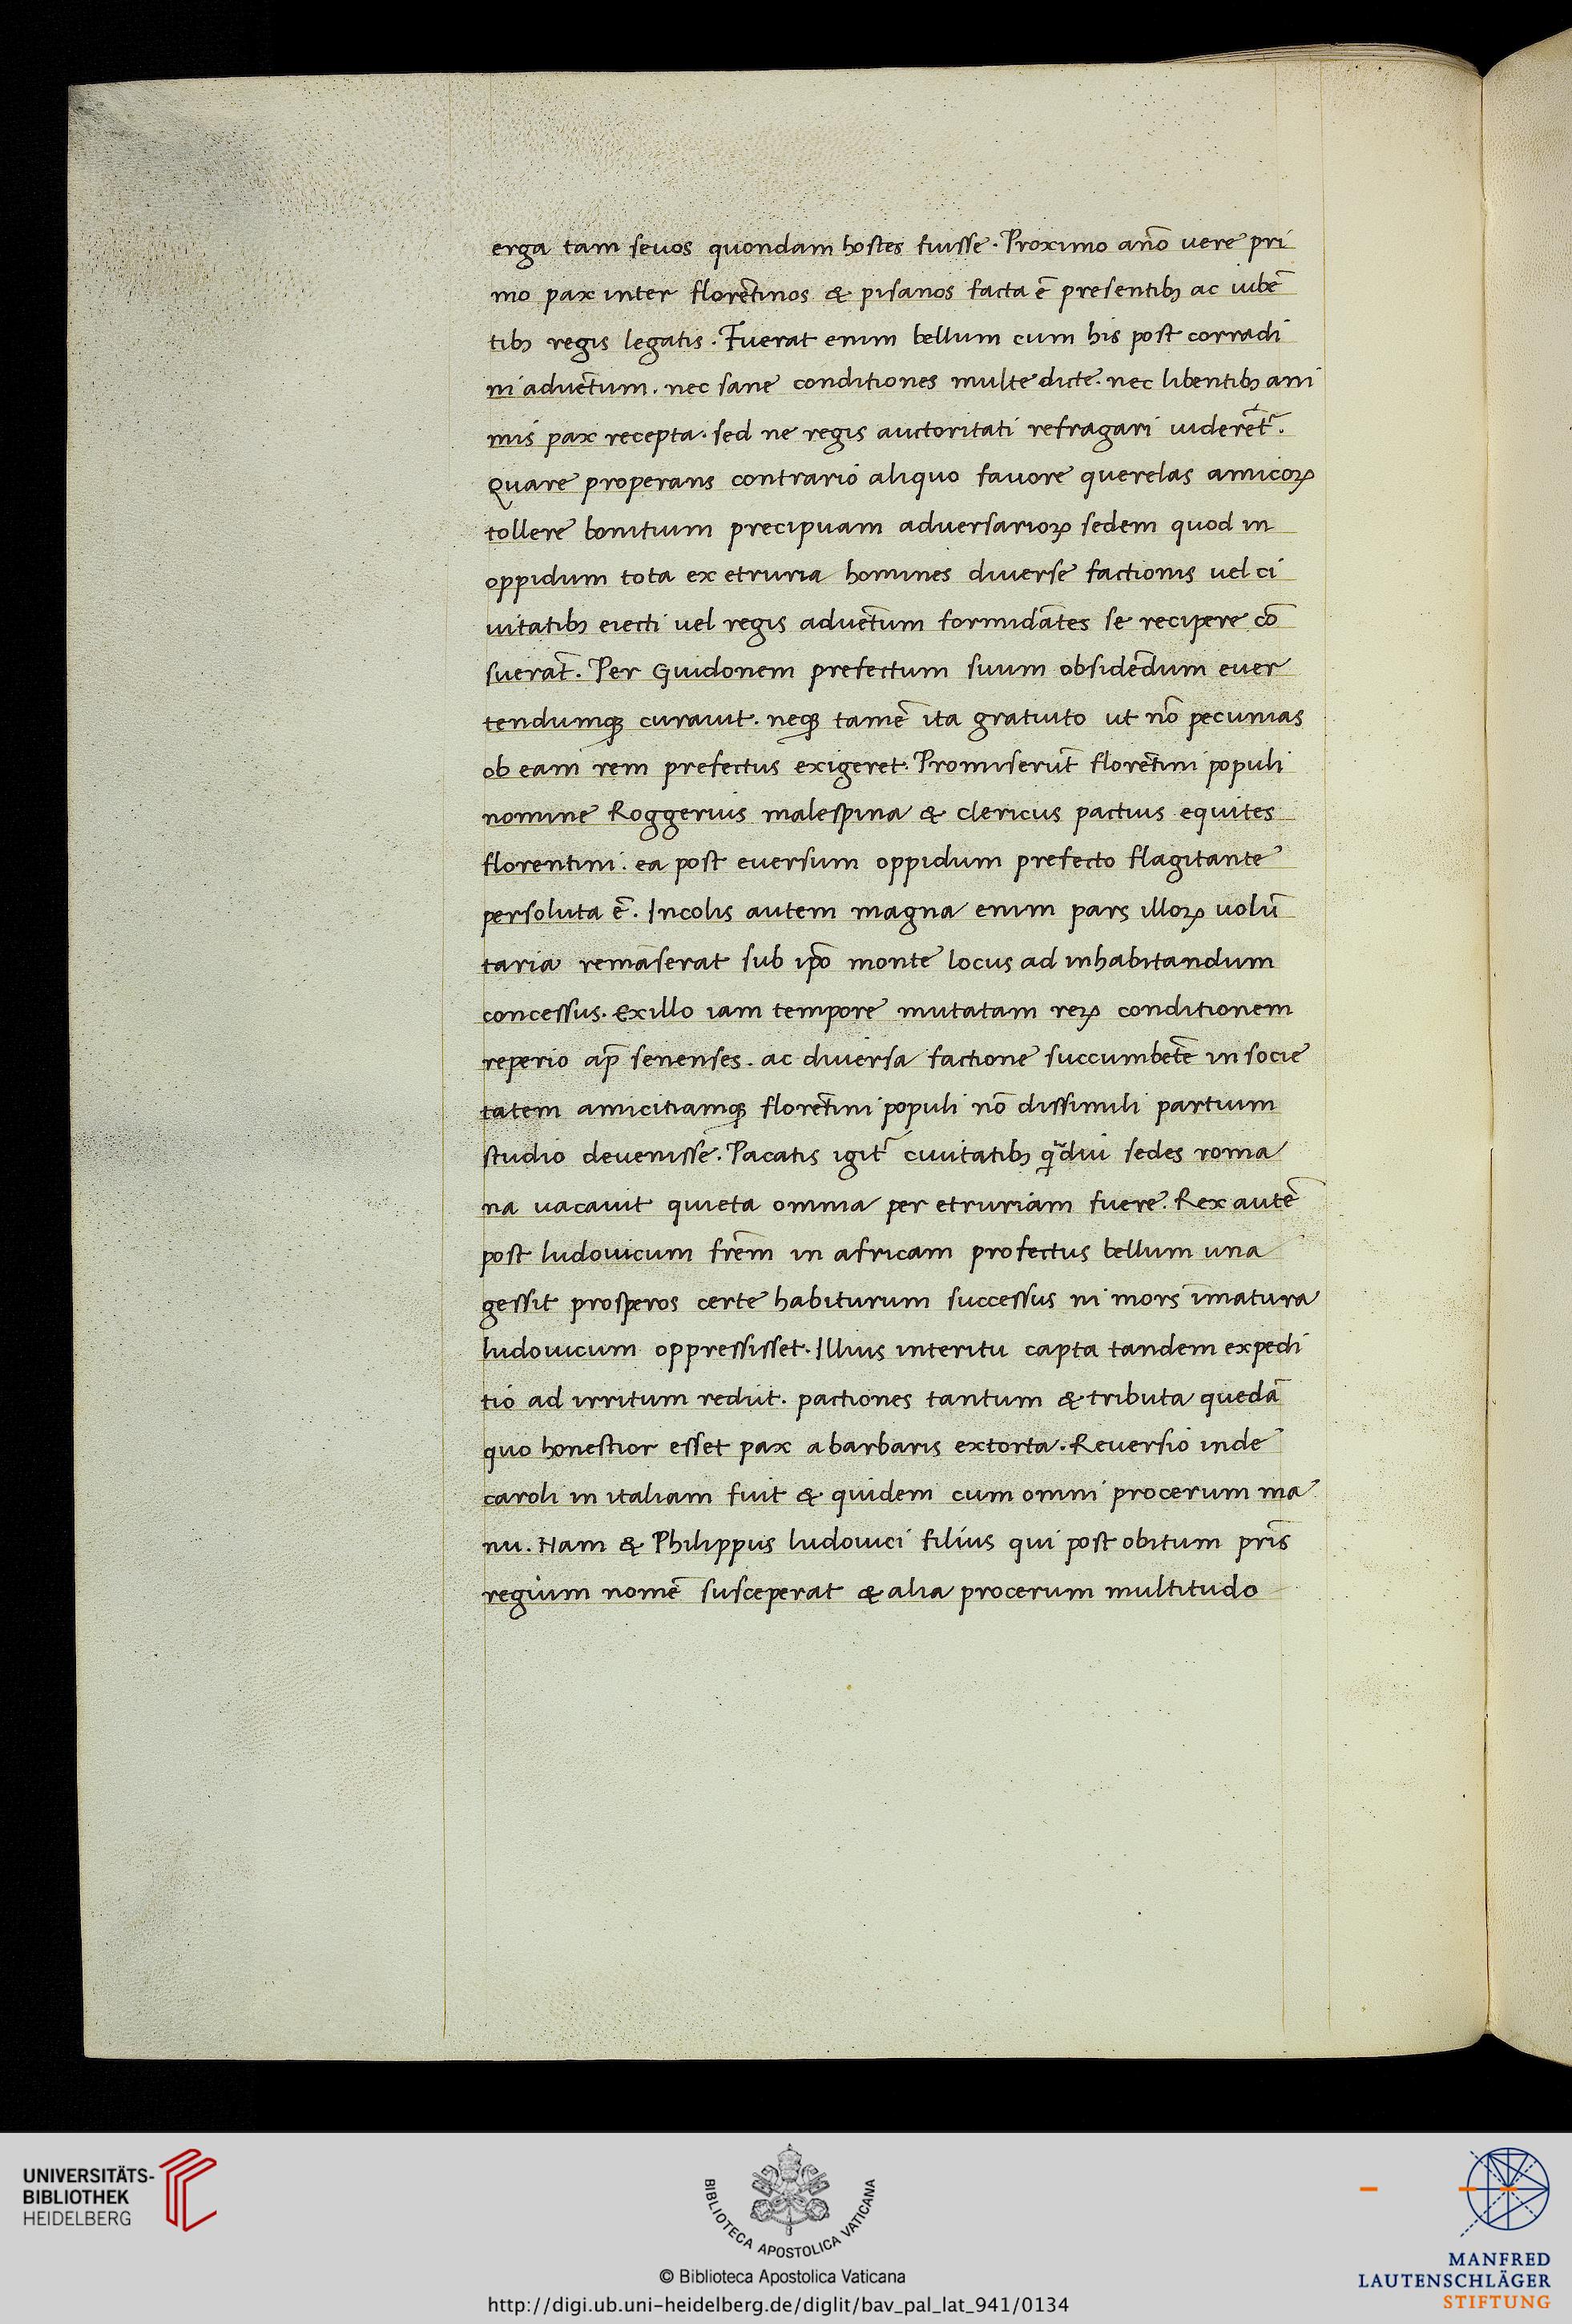 erga tam seuos quondam hostes fuisse. Proximo año uere pri
mo pax inter florētinos & pisanos facta ē presentibꝫ ac iubē
tibꝫ regis legatis. Fuerat enim bellum cum his post corradi
ni aduētum. nec sane conditiones multe dicte. nec libentibꝫ ani
mis pax recepta. sed ne regis auctoritati refragari uiderēt᷑.
Quare properans contrario aliquo fauore querelas amicoꝝ
tollere bonitium precipuam aduersarioꝝ sedem quod in
oppidum tota ex etruria homines diuerse factionis uel ci
uitatibꝫ eiecti uel regis aduētum formidātes se recipere cō
suerāt. Per Guidonem prefectum suum obsidēdum euer
tendumqꝫ curauit. neqꝫ tamē ita gratuito ut nō pecunias
ob eam rem prefectus exigeret. Promiserūt florētini populi
nomine Roggerius malespina & clericus pactius equites
florentini. ea post euersum oppidum prefecto flagitante
persoluta ē. Incolis autem magna enim pars illoꝝ uolū
taria remāserat sub ip̄o monte locus ad inhabitandum
concessus. Ex illo iam tempore mutatam reꝝ conditionem
reperio ap̄ senenses. ac diuersa factione succumbēte in socie
tatem amicitiamqꝫ florētini populi nō dissimili partium
studio deuenisse. Pacatis igit᷑ ciuitatibꝫ qᷓdiu sedes roma
na uacauit quieta omnia per etruriam fuere. Rex autē
post ludouicum fr̄em in africam profectus bellum una
gessit prosperos certe habiturum successus ni mors īmatura
ludouicum oppressisset. Illius interitu capta tandem expedi
tio ad irritum rediit. pactiones tantum & tributa quedā
quo honestior esset pax a barbaris extorta. Reuersio inde
caroli in italiam fuit & quidem cum omni procerum ma
nu. Nam & Philippus ludouici filius qui post obitum pr̄is
regium nomē susceperat & alia procerum multitudo
UNIVERSITÄTS-
BIBLIOTHEK
HEIDELBERG
BIBLIOTECA APOSTOLICA VATICANA
© Biblioteca Apostolica Vaticana
http://digi.ub.uni-heidelberg.de/diglit/bav_pal_lat_941/0134
MANFRED
LAUTENSCHLÄGER
STIFTUNG